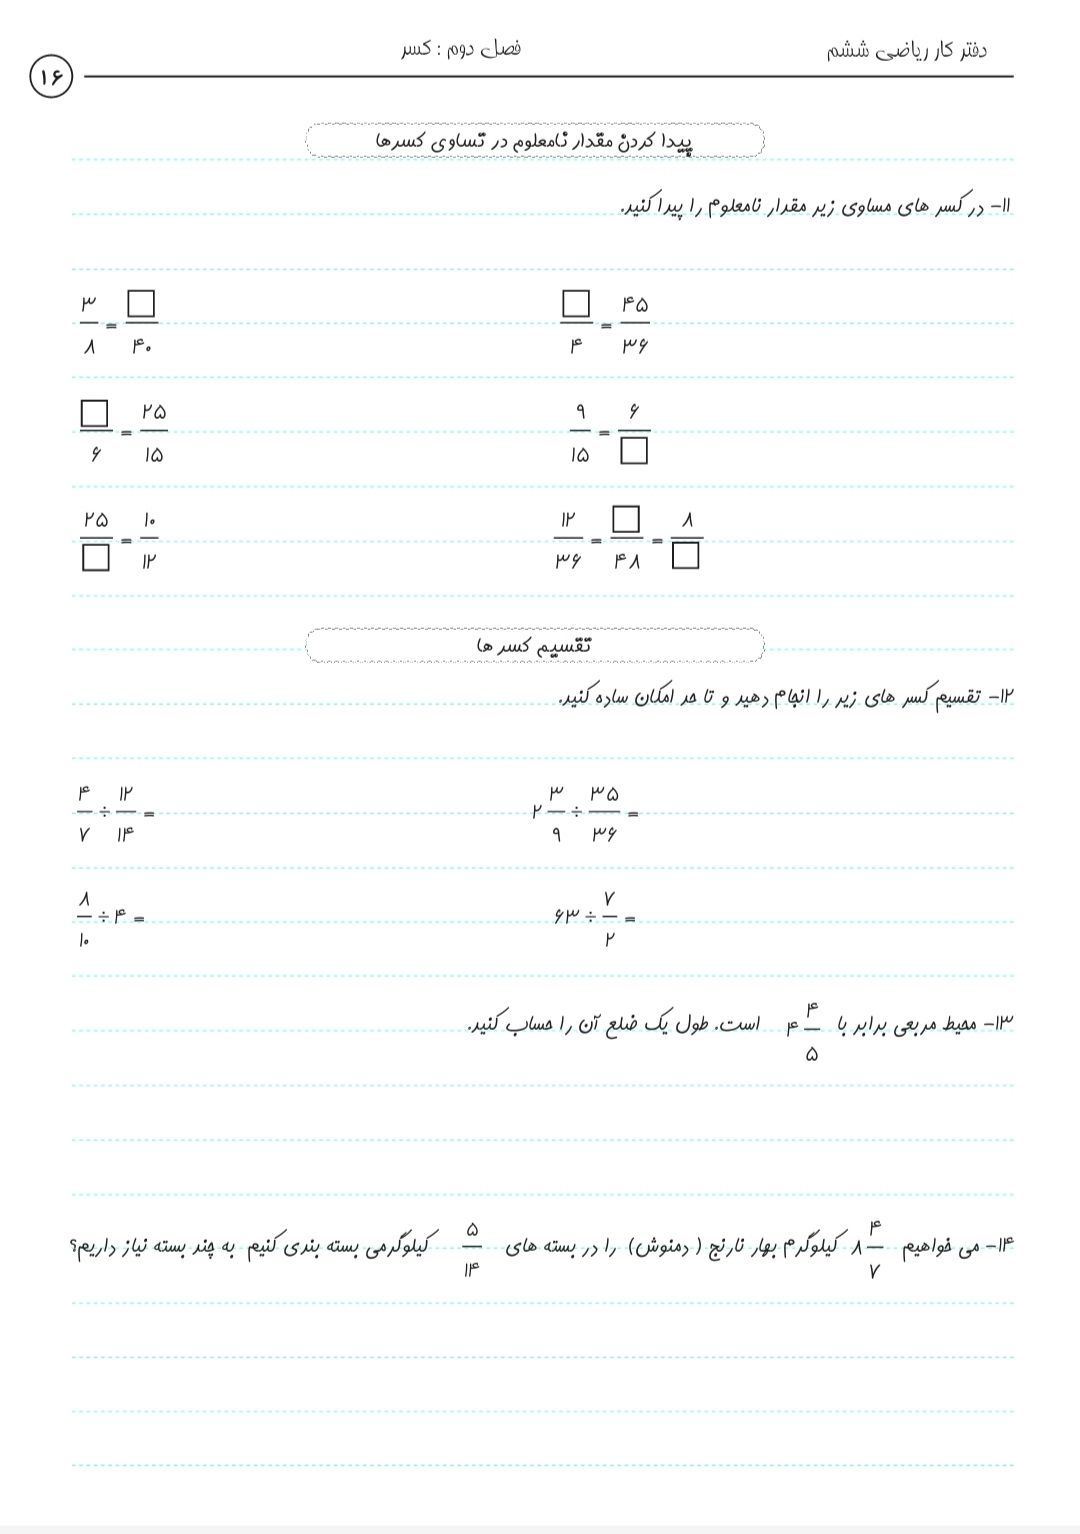 دفتر کار ریاضی ششم فصل دوم : کسر ۱۶
پیدا کردن مقدار نامعلوم در تساوی کسرها
۱۱- در کسر های مساوی زیر مقدار نامعلوم را پیدا کنید.
۳/۸ = □/۴۰ □/۴ = ۴۵/۳۶
□/۶ = ۲۵/۱۵ ۹/۱۵ = ۶/□
۲۵/□ = ۱۰/۱۲ ۱۲/۳۶ = □/۴۸ = ۸/□
تقسیم کسر ها
۱۲- تقسیم کسر های زیر را انجام دهید و تا حد امکان ساده کنید.
۴/۷ ÷ ۱۲/۱۴ = ۲ ۳/۹ ÷ ۳۵/۳۶ =
۸/۱۰ ÷ ۴ = ۶۳ ÷ ۷/۲ =
۱۳- محیط مربعی برابر با ۴ ۴/۵ است. طول یک ضلع آن را حساب کنید.
۱۴- می خواهیم ۸ ۴/۷ کیلوگرم بهار نارنج ( دمنوش) را در بسته های ۵/۱۴ کیلوگرمی بسته بندی کنیم به چند بسته نیاز داریم؟